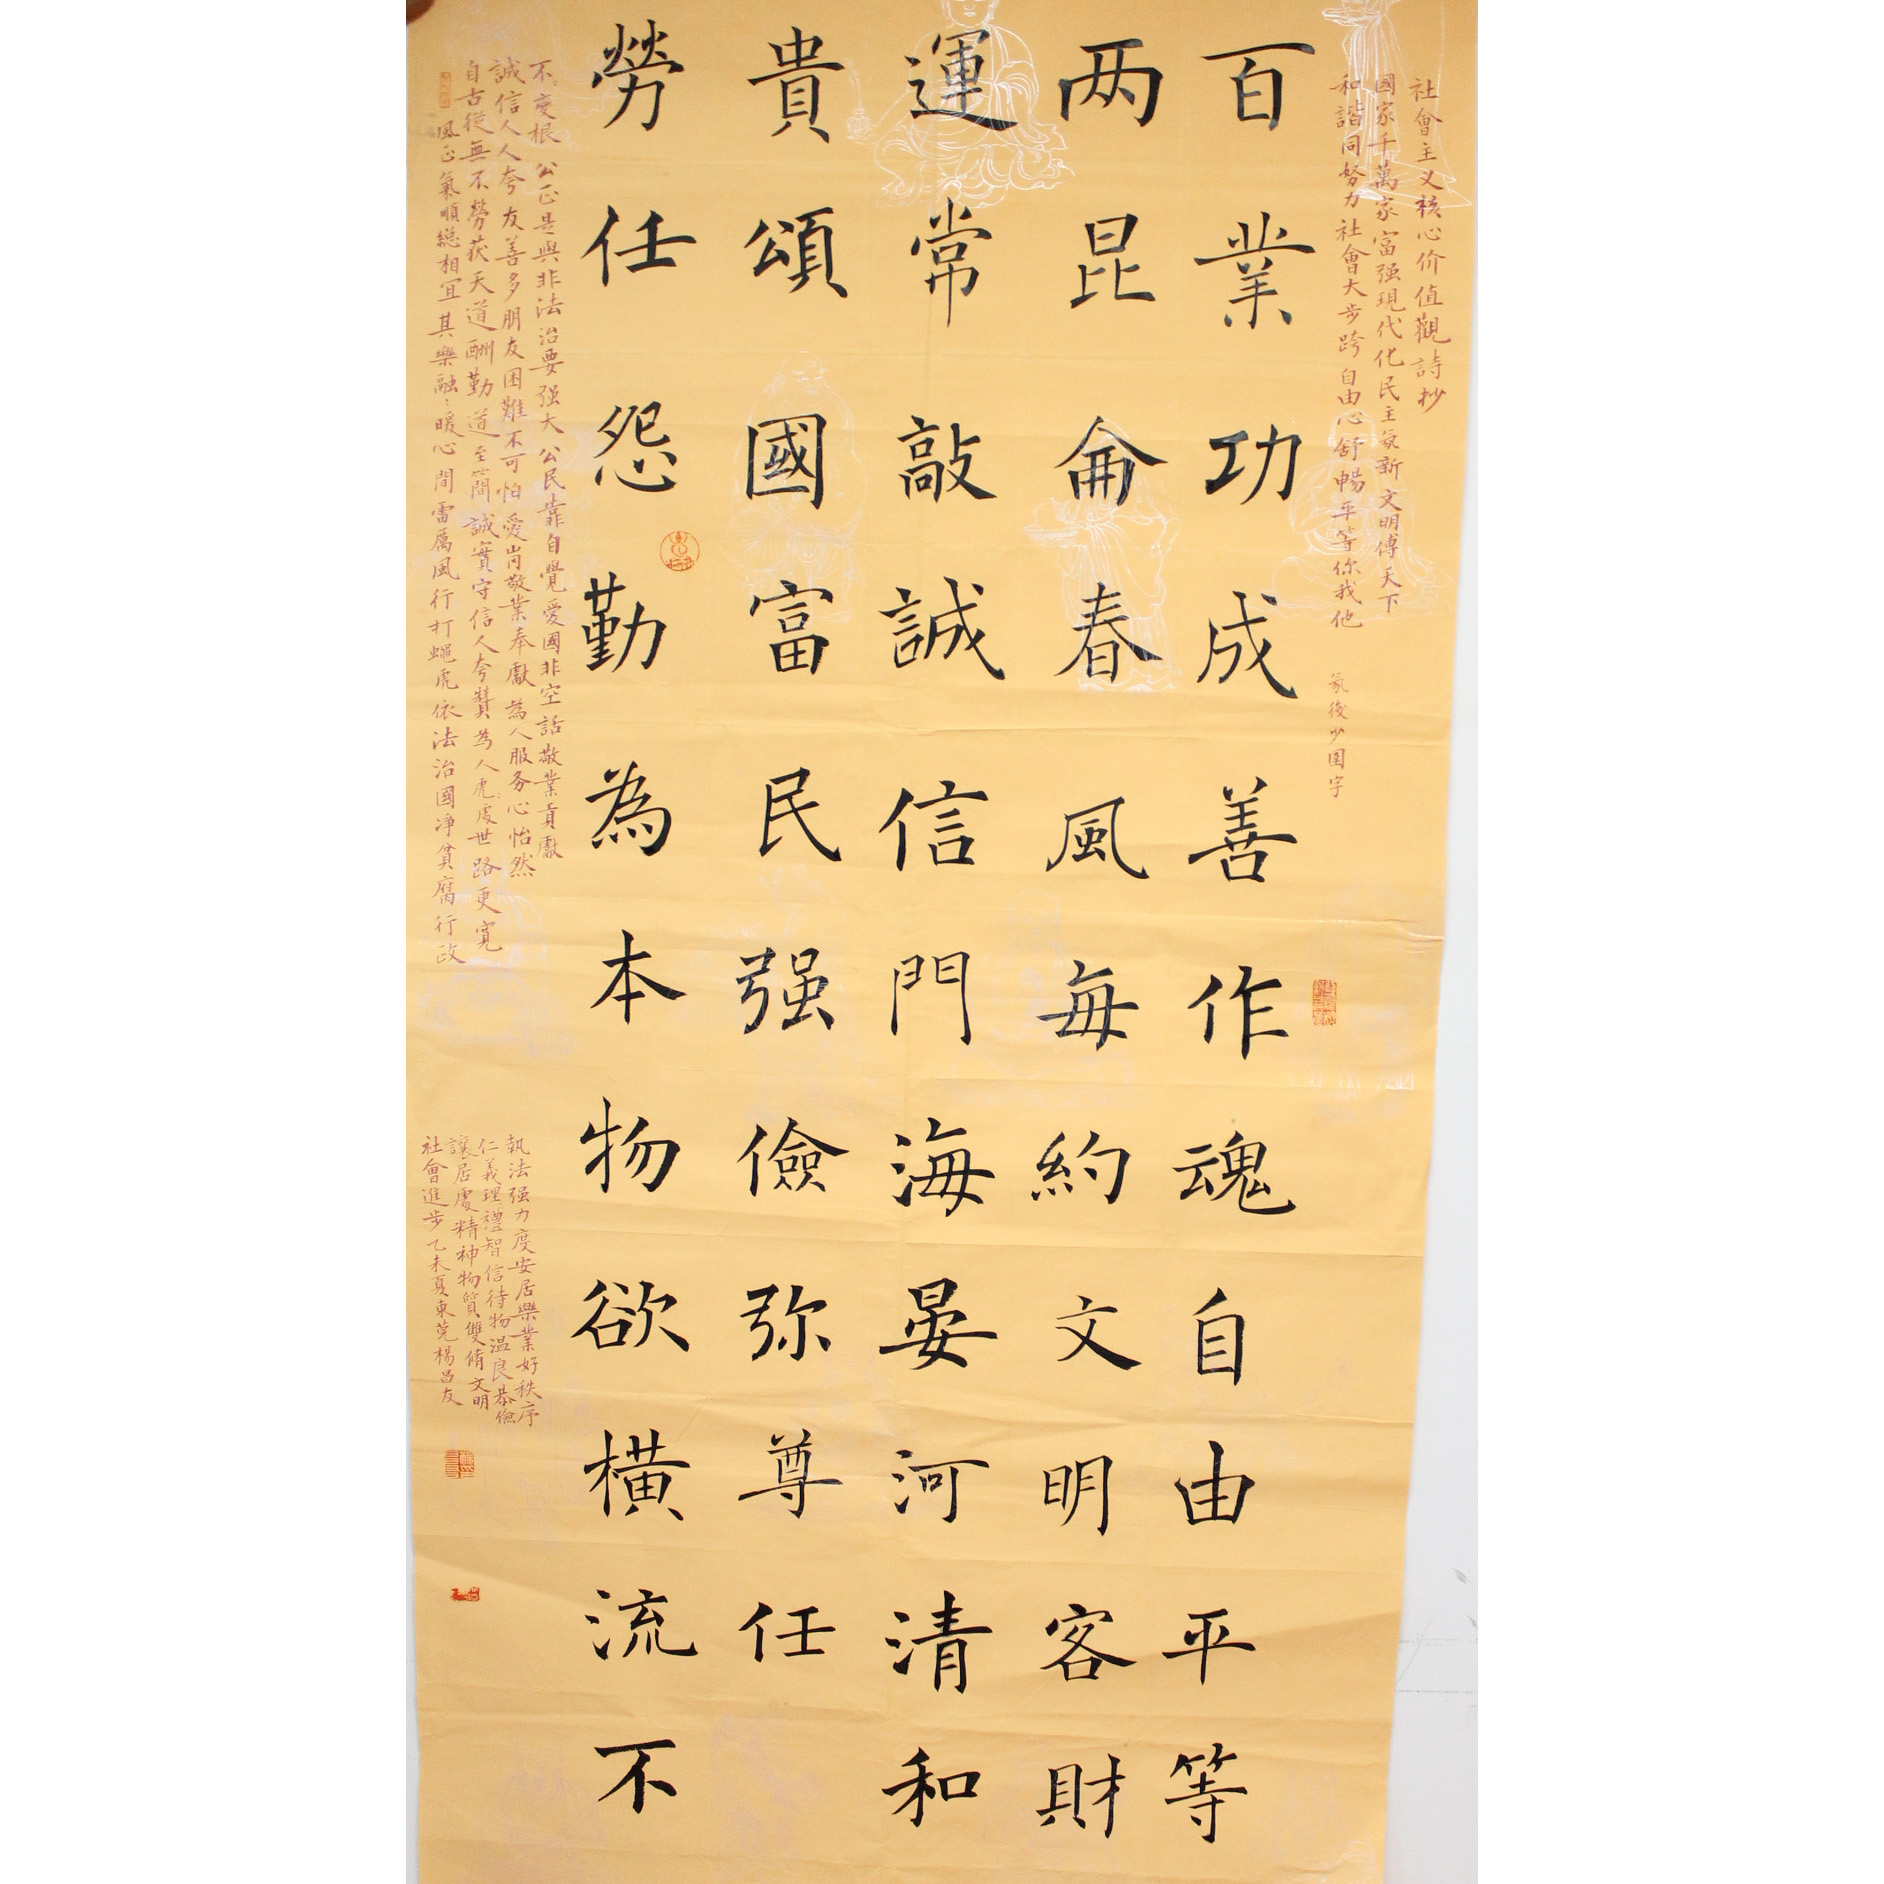 社會主义核心价值觀詩抄
國家千萬家富强現代化民主氣新文明傳天下
和諧同努力社會大步跨自由心舒暢平等你我他
百業功成善作魂自由平等
两昆侖春風每約文明客財
運常敲誠信門海晏河清和
貴頌國富民强儉弥尊任
勞任怨勤為本物欲橫流不
不變根公正是與非法治要强大公民靠自覺愛國非空話敬業貢獻
誠信人人夸友善多朋友困難不可怕愛岗敬業奉獻為人服务心怡然
自古從無不勞获天道酬勤道至簡誠實守信人夸贊為人處世路更寬
風正氣順總相宜其樂融々暖心間雷厲風行打蠅虎依法治國净貧腐行政
執法强力度安居樂業好秩序
仁義理禮智信待物温良恭儉
讓居處精神物質雙脩文明
社會進步乙未夏東莞楊昌友